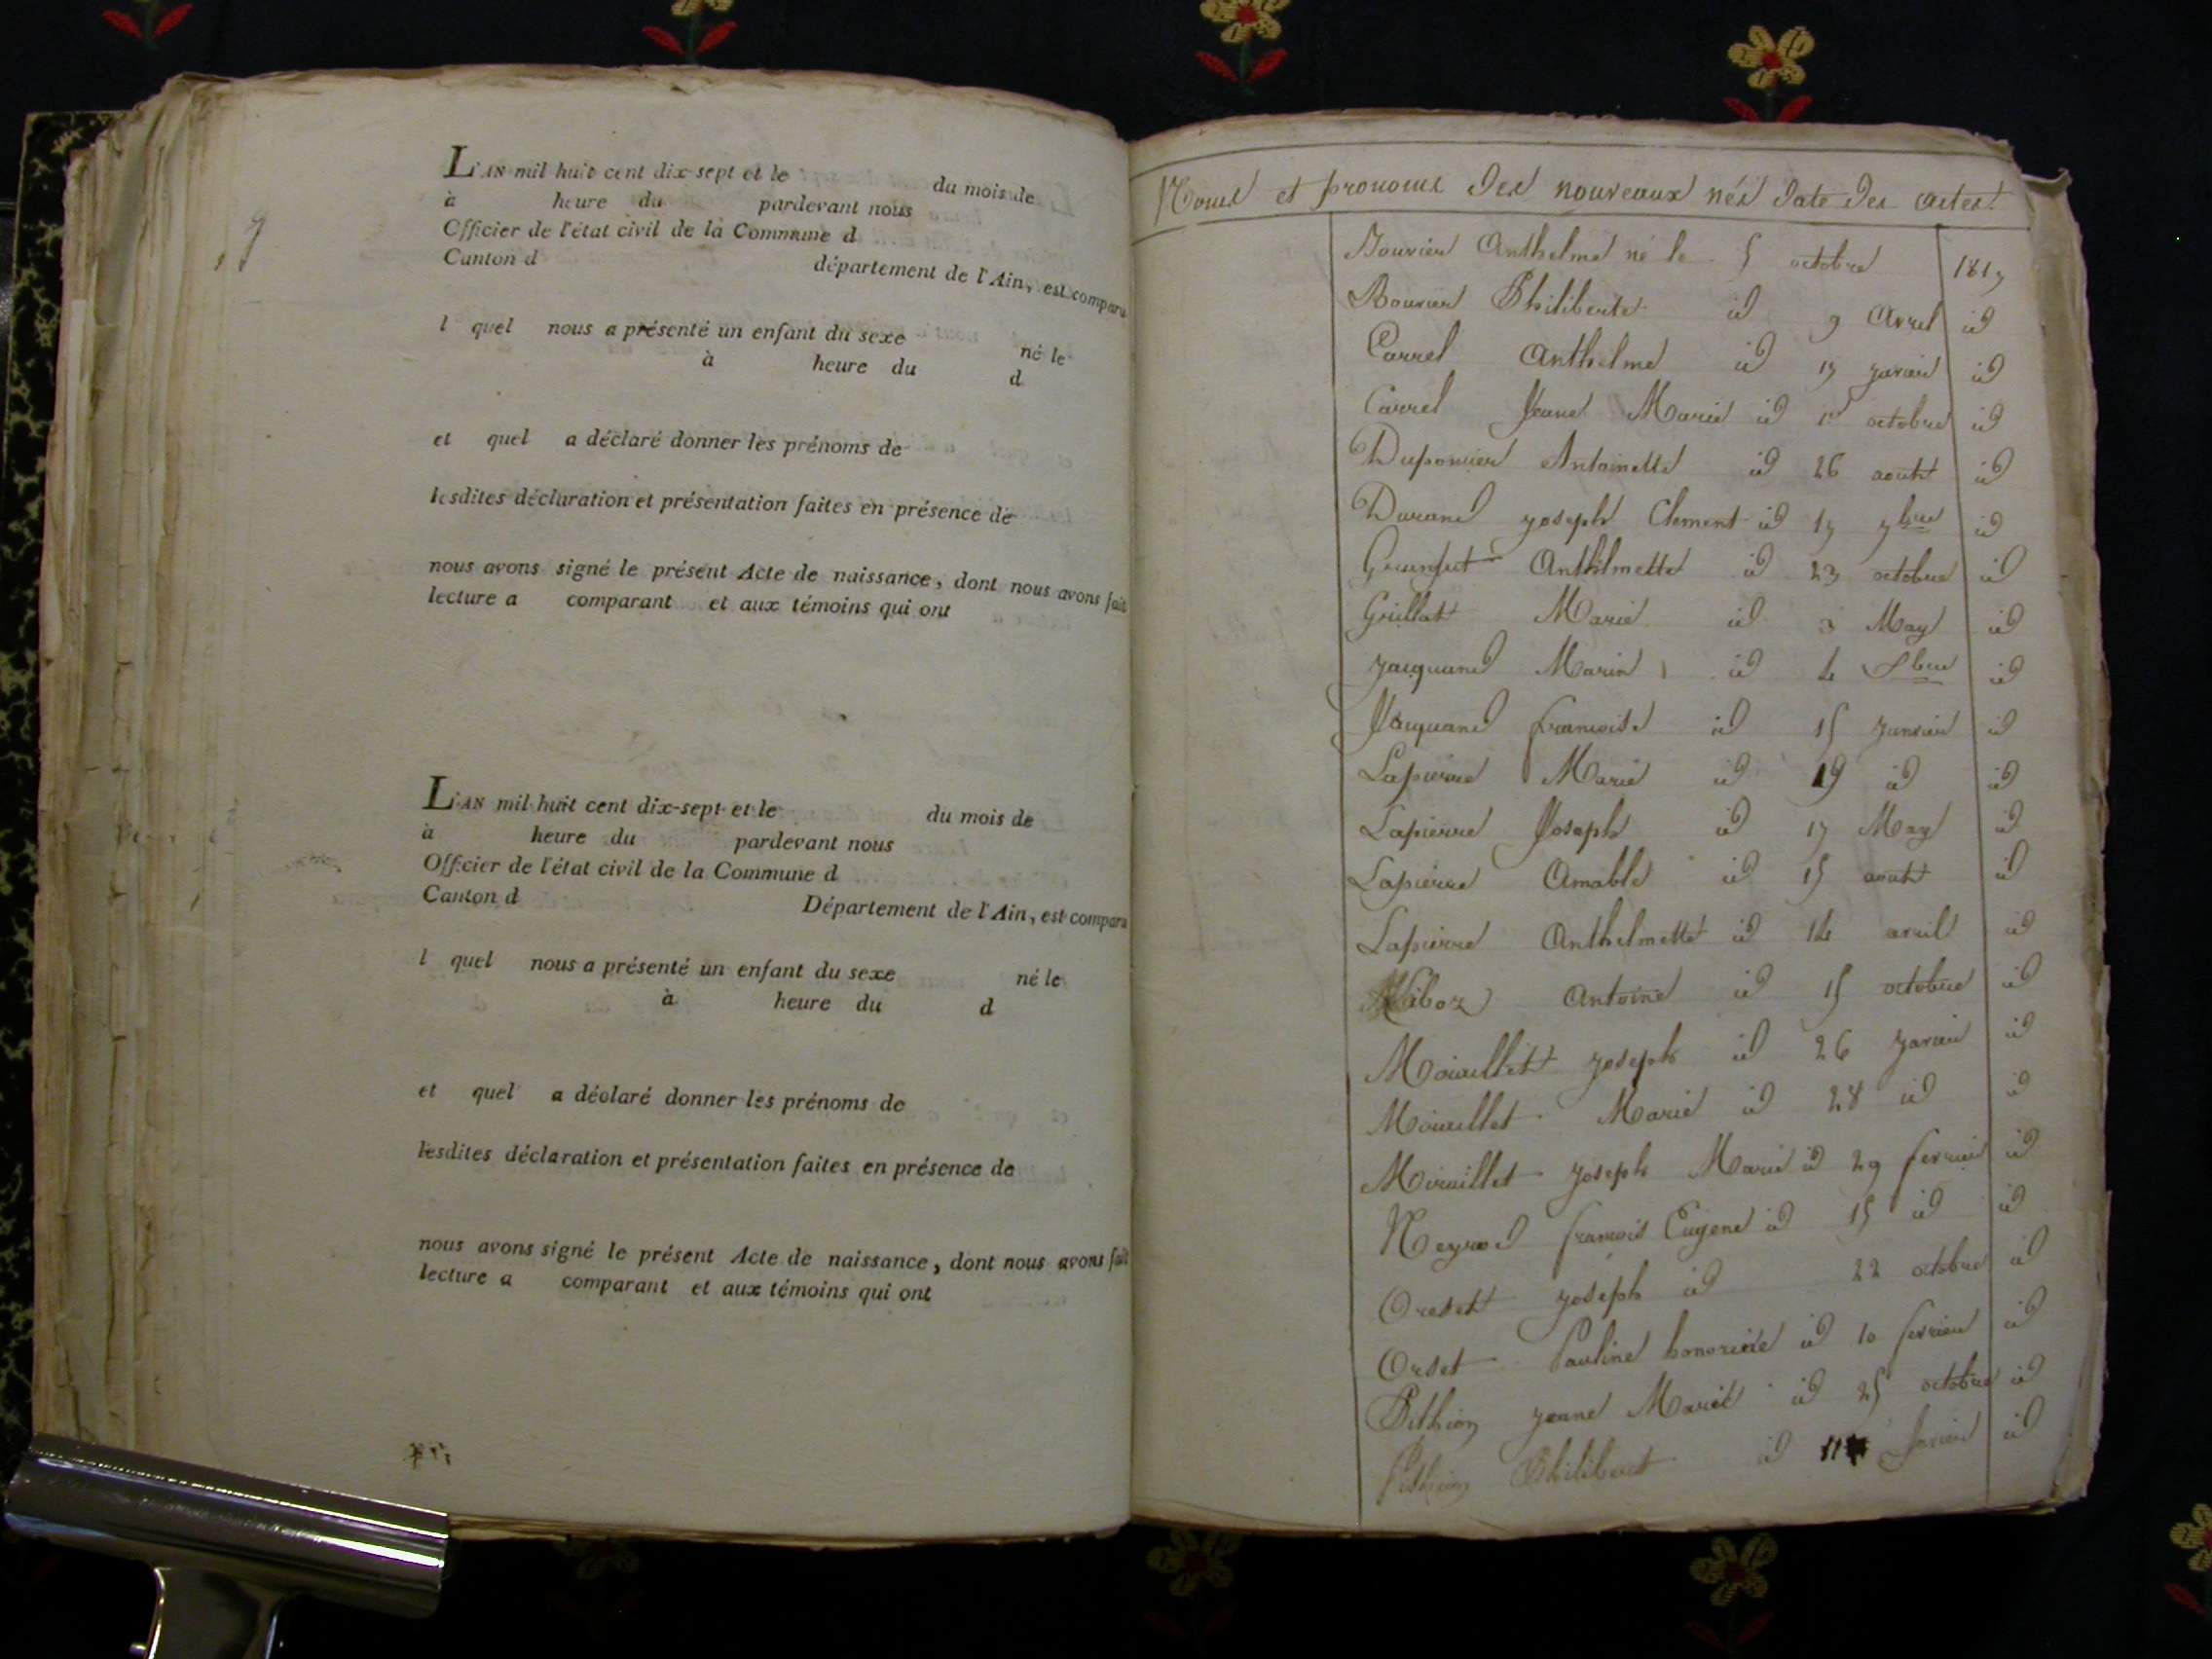 L'AN mil huit cent dix-sept et le du mois de
à heure du pardevant nous
Officier de l'état civil de la Commune d
Canton d département de l'Ain, est compara
l quel nous a présenté un enfant du sexe né le
à heure du d
et quel a déclaré donner les prénoms de
lesdites déclaration et présentation faites en présence de
nous avons signé le présent Acte de naissance, dont nous avons fait
lecture a comparant et aux témoins qui ont
L'AN mil huit cent dix-sept et le du mois de
à heure du pardevant nous
Officier de l'état civil de la Commune d
Canton d Département de l'Ain, est compara
l quel nous a présenté un enfant du sexe né le
à heure du d
et quel a déclaré donner les prénoms de
lesdites déclaration et présentation faites en présence de
nous avons signé le présent Acte de naissance, dont nous avons fait
lecture a comparant et aux témoins qui ont
Noms et pronoms des nouveaux nés date des actes.
Bouvier Anthelme né le 5 octobre 1817
Bouvier Philiberte id 9 Avril id
Carrel Anthelme id 17 id
Carrel Jeane Marie id octobre id
Duponier Antoinette id 26 aoutt id
Durand joseph Clement id 17 7bre id
Anthelmette id 23 octobre id
Grillat Marie id 3 May id
jacquand Marin id 4 8bre id
Jacquand francoise id 15 janvier id
Lapierre Marie id 19 id id
Lapierre Joseph id 17 May id
Lapierre Amable id 15 aoutt id
Lapierre Anthelmette id 14 avril id
Miboz Antoine id 15 octobre id
joseph id 26 id
Marie id 28 id id
joseph Marie id 29 fevrier id
Neyrod francois Eugene id 15 id id
joseph id 22 octobre id
Orset Pauline honorine id 10 fevrier id
Pithion jeane Marie id 25 octobre id
Pithion Philibert id id